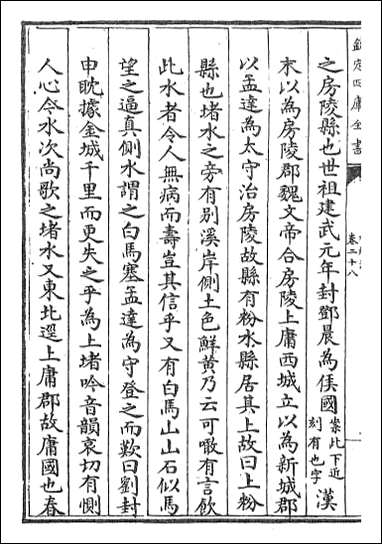 欽定四庫全書
卷二十八
之房陵縣也世祖建武元年封鄧晨為侯國案此下近刻有也字漢
末以為房陵郡魏文帝合房陵上庸西城立以為新城郡
以孟達為太守治房陵故縣有粉水縣居其上故曰上粉
縣也堵水之旁有別溪岸側土色鮮黃乃云可噉有言飲
此水者令人無病而壽豈其信乎又有白馬山山石似馬
望之逼真側水謂之白馬塞孟達為守登之而歎曰劉封
申耽據金城千里而更失之乎為上堵吟音韻哀切有惻
人心今水次尚歌之堵水又東北逕上庸郡故庸國也春